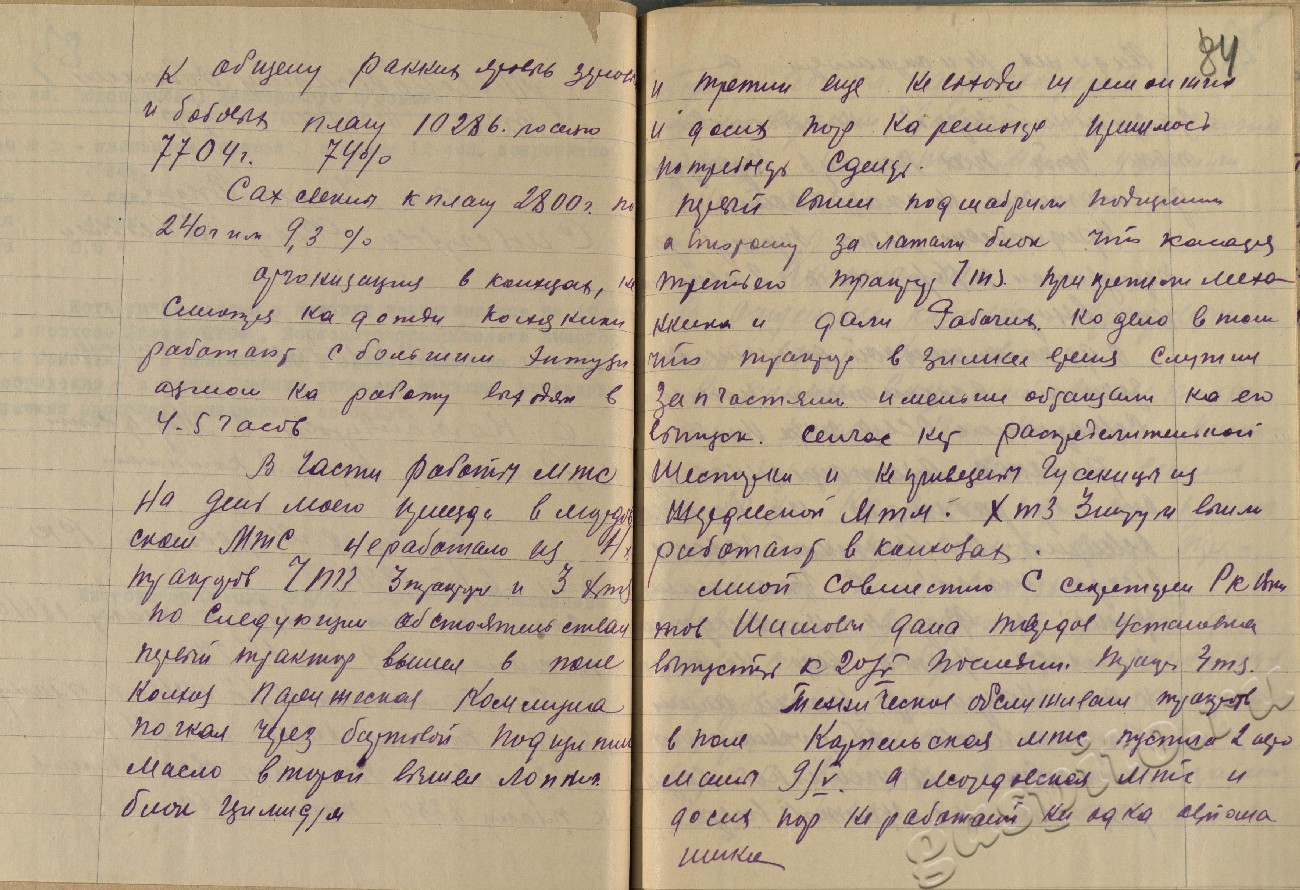 к общему ранних яровых зернов
и бобовых плану 10286. посеяно
7704г. 74%
Сах свекла к плану 2800г. по
240г или 9,3 %
организация в колхозах, не
смотря на дожди колхозники
работают с большим энтузи
азмом на работу выходят в
4-5 часов
В части работы МТС
На день моего приезда в мордов
ской МТС неработало из 4х
тракторов ЧТЗ 3 трактора и 3 ХТЗ
по следующим обстоятельствам
первый трактор вышел в поле
колхоз Парижская Коммуна
погнал через бортовой подшипник
масло второй вышел лопнул
блок цилиндра
84
и третий еще не выходил из ремонта
и до сих пор на ремонте пришлось
потребовать сделать.
первый вышел подшабрили подшипник
а второму залатали блок что касается
третьего трактора ЧТЗ прикрепили меха
ника и дали Рабочих. но дело в том
что трактор в зимнее время служил
Запчастями и меньше обращали на его
выпуск. сейчас нет распределительной
Шестерни и не привезены Гусеницы из
МТМ. ХТЗ 3 штуки вышли
работают в колхозах.
мной совместно с секретарем РК ВКП
тов Шиловым дана твердая установка
выпустить к 20/IV последний трактор ЧТЗ.
Техническое обслуживание тракторов
в поле Карпельская МТС пустила 2 авто
машины 9/IV. а мордовская МТС и
до сих пор не работает ни одна автома
шина
gaspito.ru